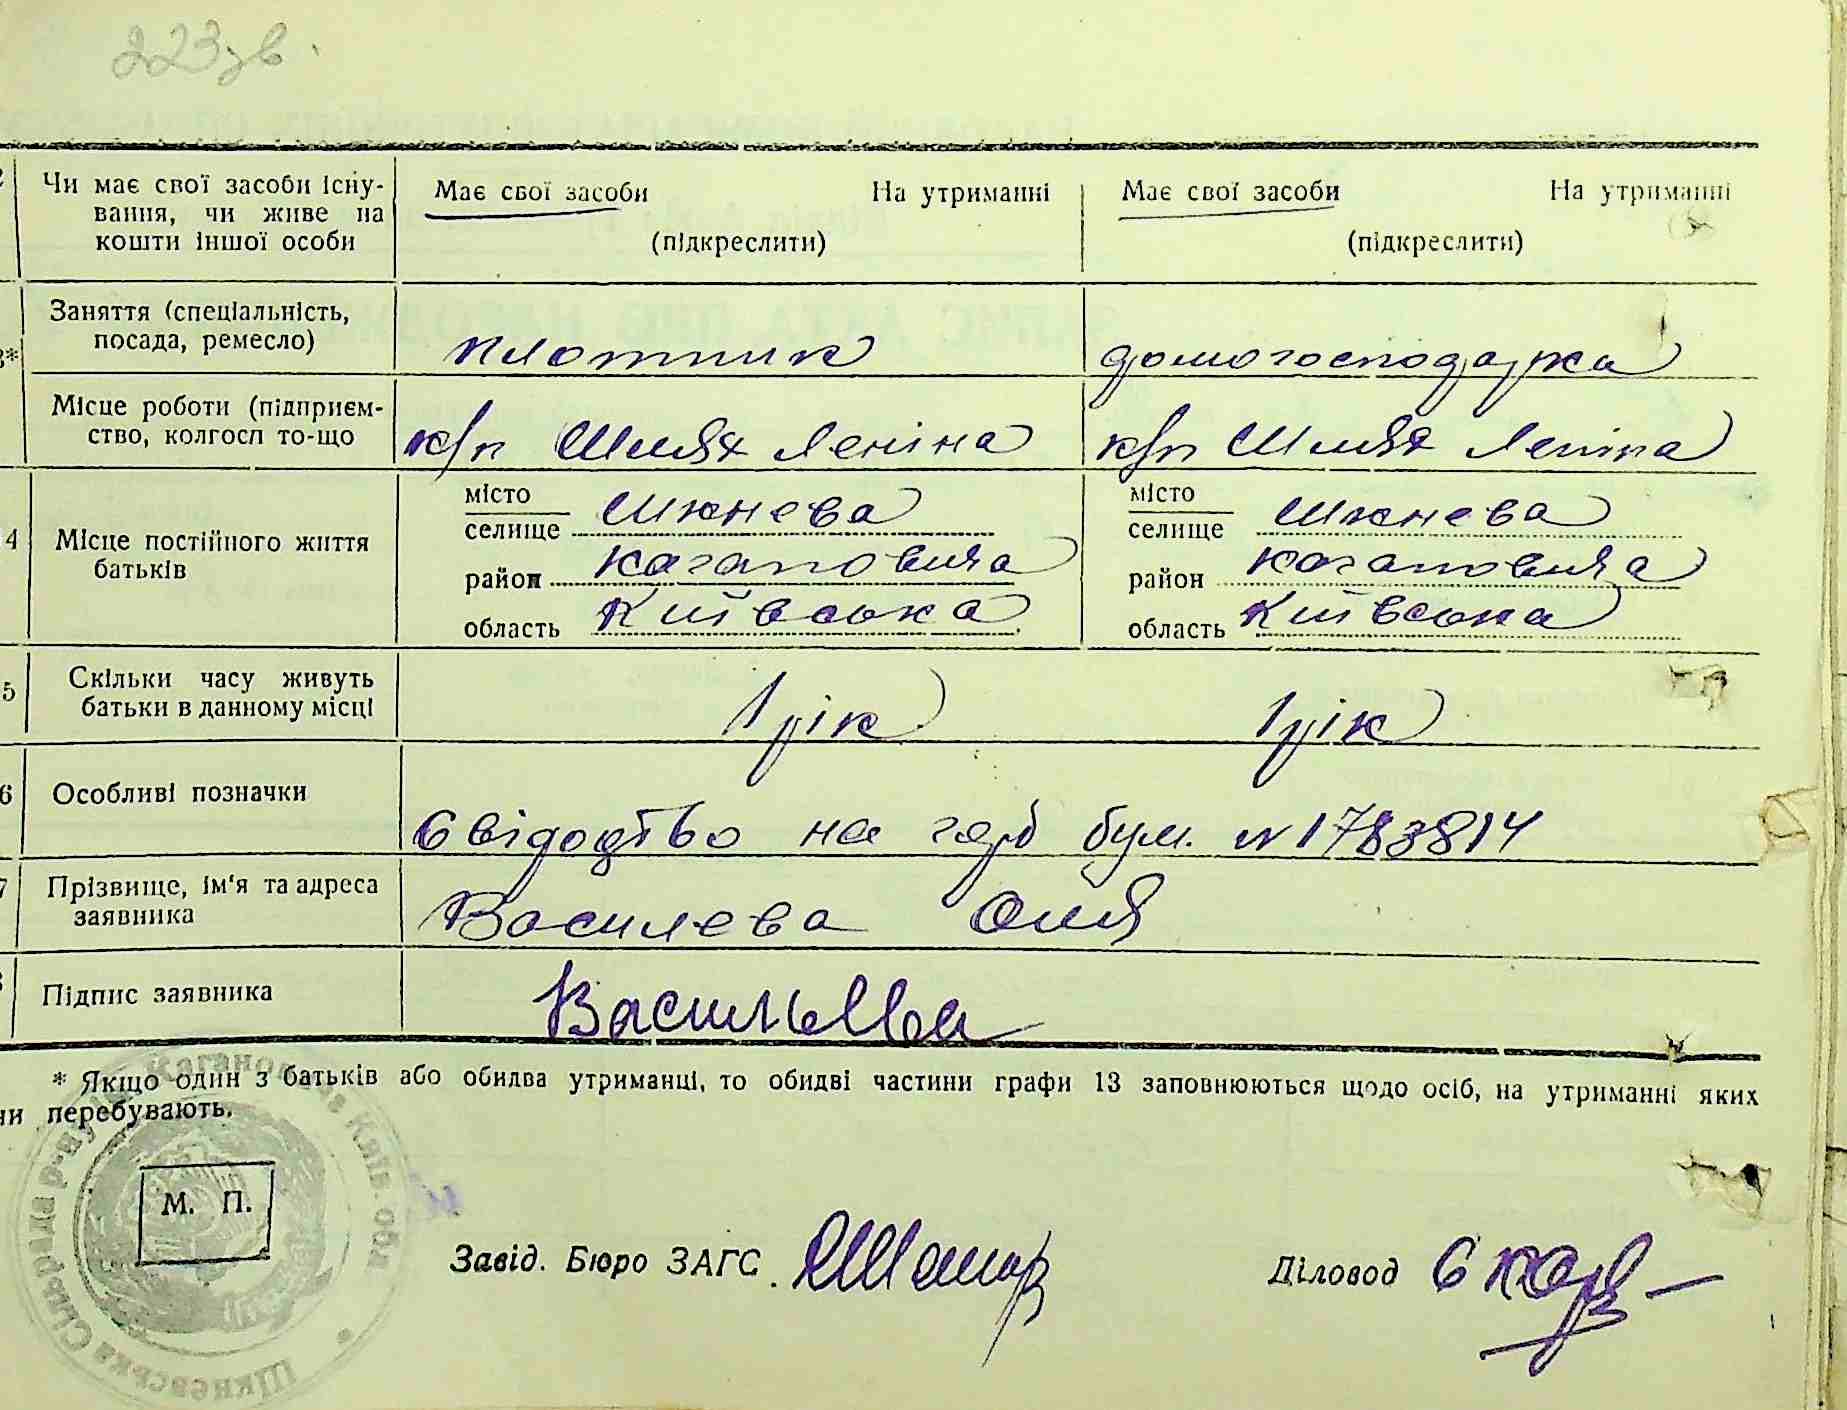 223 зв.
Чи має свої засоби існу- Має свої засоби На утриманні Має свої засоби На утриманні
вання, чи живе на
кошти іншої особи (підкреслити) (підкреслити)
Заняття (спеціальність,
посада, ремесло) плотник домогосподарка
3*
Місце роботи (підприєм-
ство, колгосп то-що к/п Шлях Леніна к/п Шлях Леніна
місто місто
селище Шкнева селище Шкнева
4 Місце постійного життя
батьків
район Кагановича район Кагановича
область Київська область Київська
5 Скільки часу живуть
батьки в данному місці 1 рік 1 рік
6 Особливі позначки
Свідоцтво на герб бум. № 1783814
7 Прізвище, ім'я та адреса
заявника Василева Оля
Підпис заявника Васильева
* Якщо один з батьків або обидва утриманці, то обидві частини графи 13 заповнюються щодо осіб, на утриманні яких
ни перебувають.
М. П.
Завід. Бюро ЗАГС Діловод
Шкневська Сільрада р-ну Київ. обл